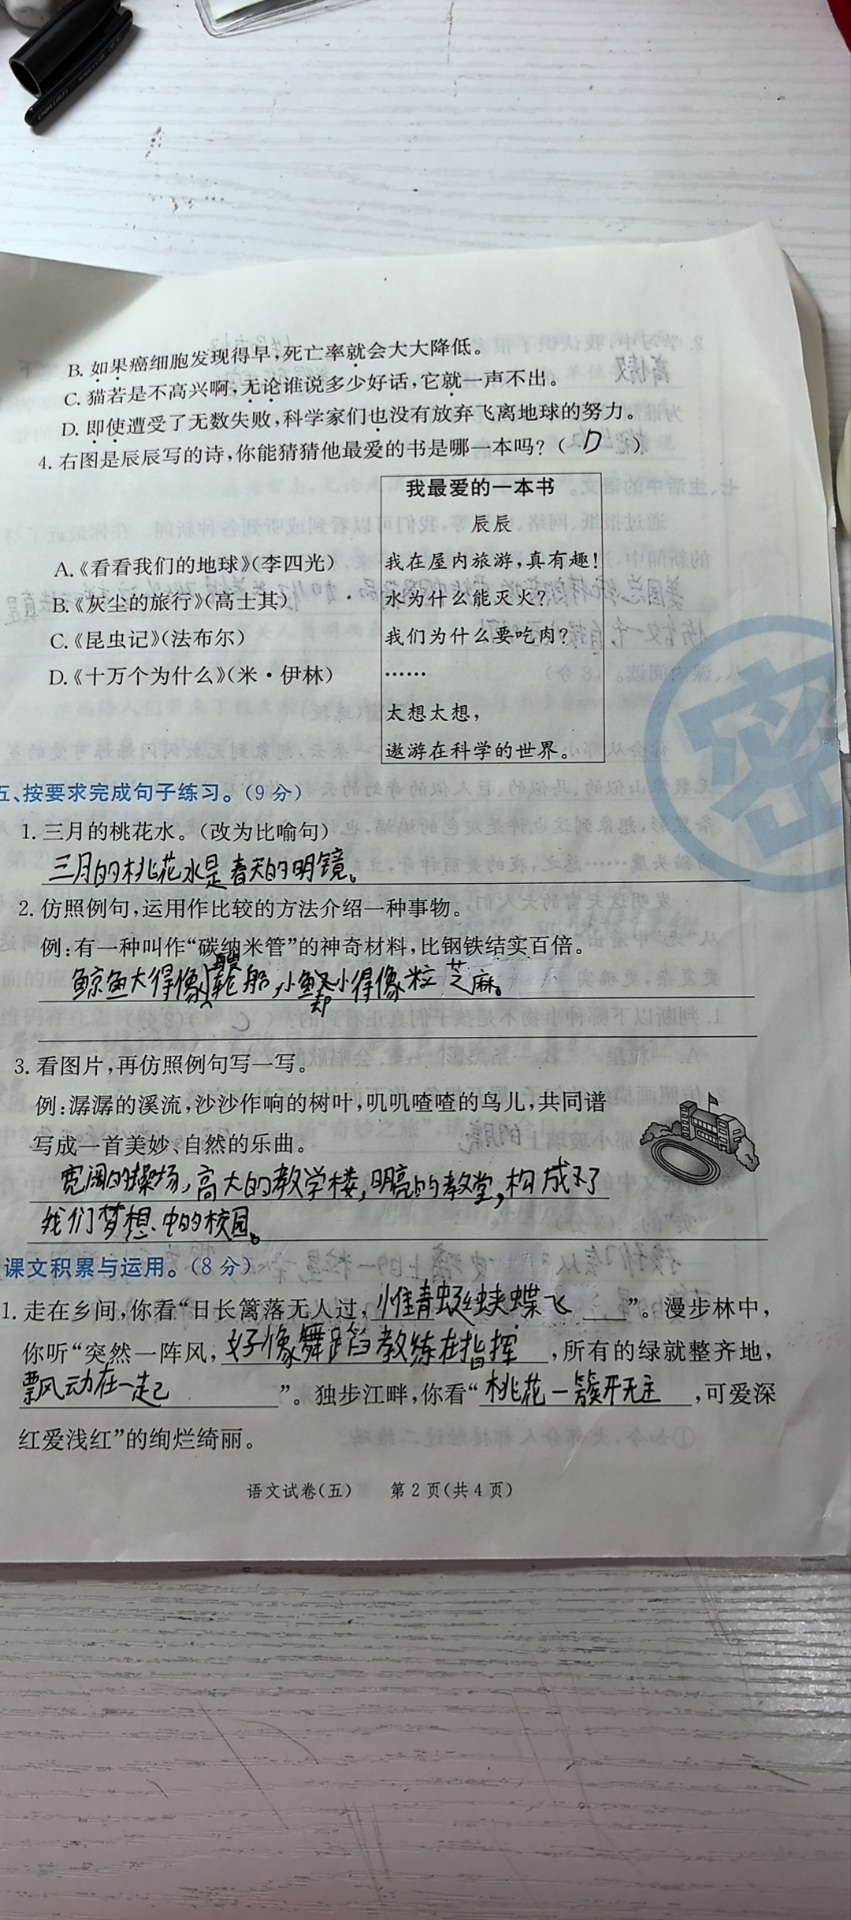 B. 如果癌细胞发现得早,死亡率就会大大降低。
C. 猫若是不高兴啊,无论谁说多少好话,它就一声不出。
D. 即使遭受了无数失败,科学家们也没有放弃飞离地球的努力。
4. 右图是辰辰写的诗,你能猜猜他最爱的书是哪一本吗?( D )
我最爱的一本书
辰辰
A.《看看我们的地球》(李四光)
我在屋内旅游,真有趣!
B.《灰尘的旅行》(高士其)
水为什么能灭火?
C.《昆虫记》(法布尔)
我们为什么要吃肉?
D.《十万个为什么》(米·伊林)
……
太想太想,
遨游在科学的世界。
密
五、按要求完成句子练习。(9分)
1. 三月的桃花水。(改为比喻句)
三月的桃花水是春天的明镜。
2. 仿照例句,运用作比较的方法介绍一种事物。
例:有一种叫作“碳纳米管”的神奇材料,比钢铁结实百倍。
鲸鱼大得像轮船,小鱼却小得像粒芝麻。
3. 看图片,再仿照例句写一写。
例:潺潺的溪流,沙沙作响的树叶,叽叽喳喳的鸟儿,共同谱
写成一首美妙、自然的乐曲。
宽阔的操场,高大的教学楼,明亮的教堂,构成了
我们梦想中的校园。
课文积累与运用。(8分)
1. 走在乡间,你看“日长篱落无人过, 惟青蜓蛱蝶飞 ”。漫步林中,
你听“突然一阵风, 好像舞蹈教练在指挥 ,所有的绿就整齐地,
飘动在一起 ”。独步江畔,你看“ 桃花一簇开无主 ,可爱深
红爱浅红”的绚烂绮丽。
语文试卷(五) 第2页(共4页)